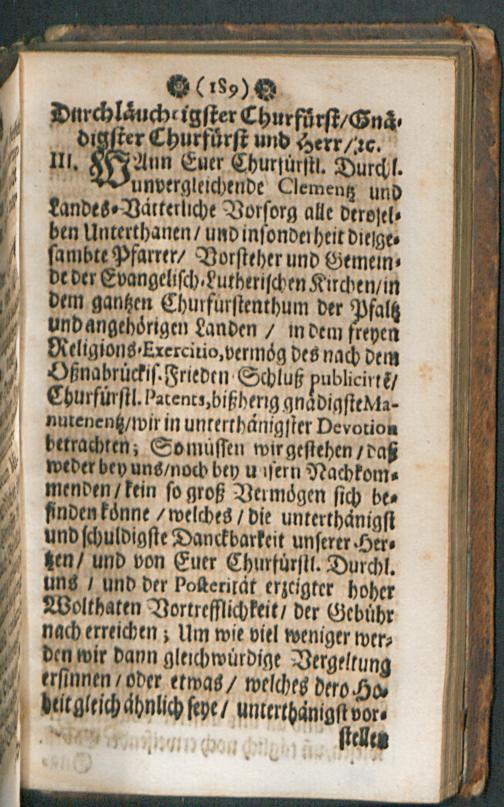 (189)
Durchläuchtigster Churfürst/Gnä-
digster Churfürst und Herr/ꝛc.
III. WAnn Euer Churfürstl. Durchl.
unvergleichende Clementz und
Landes-Vätterliche Vorsorg alle derosel-
ben Unterthanen/ und insonderheit die gge-
sambte Pfarrer/ Vorsteher und Gemein-
de der Evangelisch-Lutherischen Kirchen/in
dem gantzen Churfürstenthum der Pfaltz
und angehörigen Landen / in dem freyen
Religions-Exercitio,vermög des nach dem
Oßnabrückis. Frieden Schluß publicirtē/
Churfürstl. Patents,bißherig gnädigste Ma-
nutenentz/wir in unterthänigster Devotion
betrachten; So müssen wir gestehen / daß
weder bey uns/noch bey unsern Nachkom-
menden / kein so groß Vermögen sich be-
finden könne / welches / die unterthänigst
und schuldigste Danckbarkeit unserer Her-
tzen/ und von Euer Churfürstl. Durchl.
uns / und der Posterität erzeigter hoher
Wolthaten Vortrefflichkeit/ der Gebühr
nach erreichen; Um wie viel weniger wer-
den wir dann gleichwürdige Vergeltung
ersinnen / oder etwas / welches dero Ho-
heit gleich ähnlich seye / unterthänigst vor-
stellen